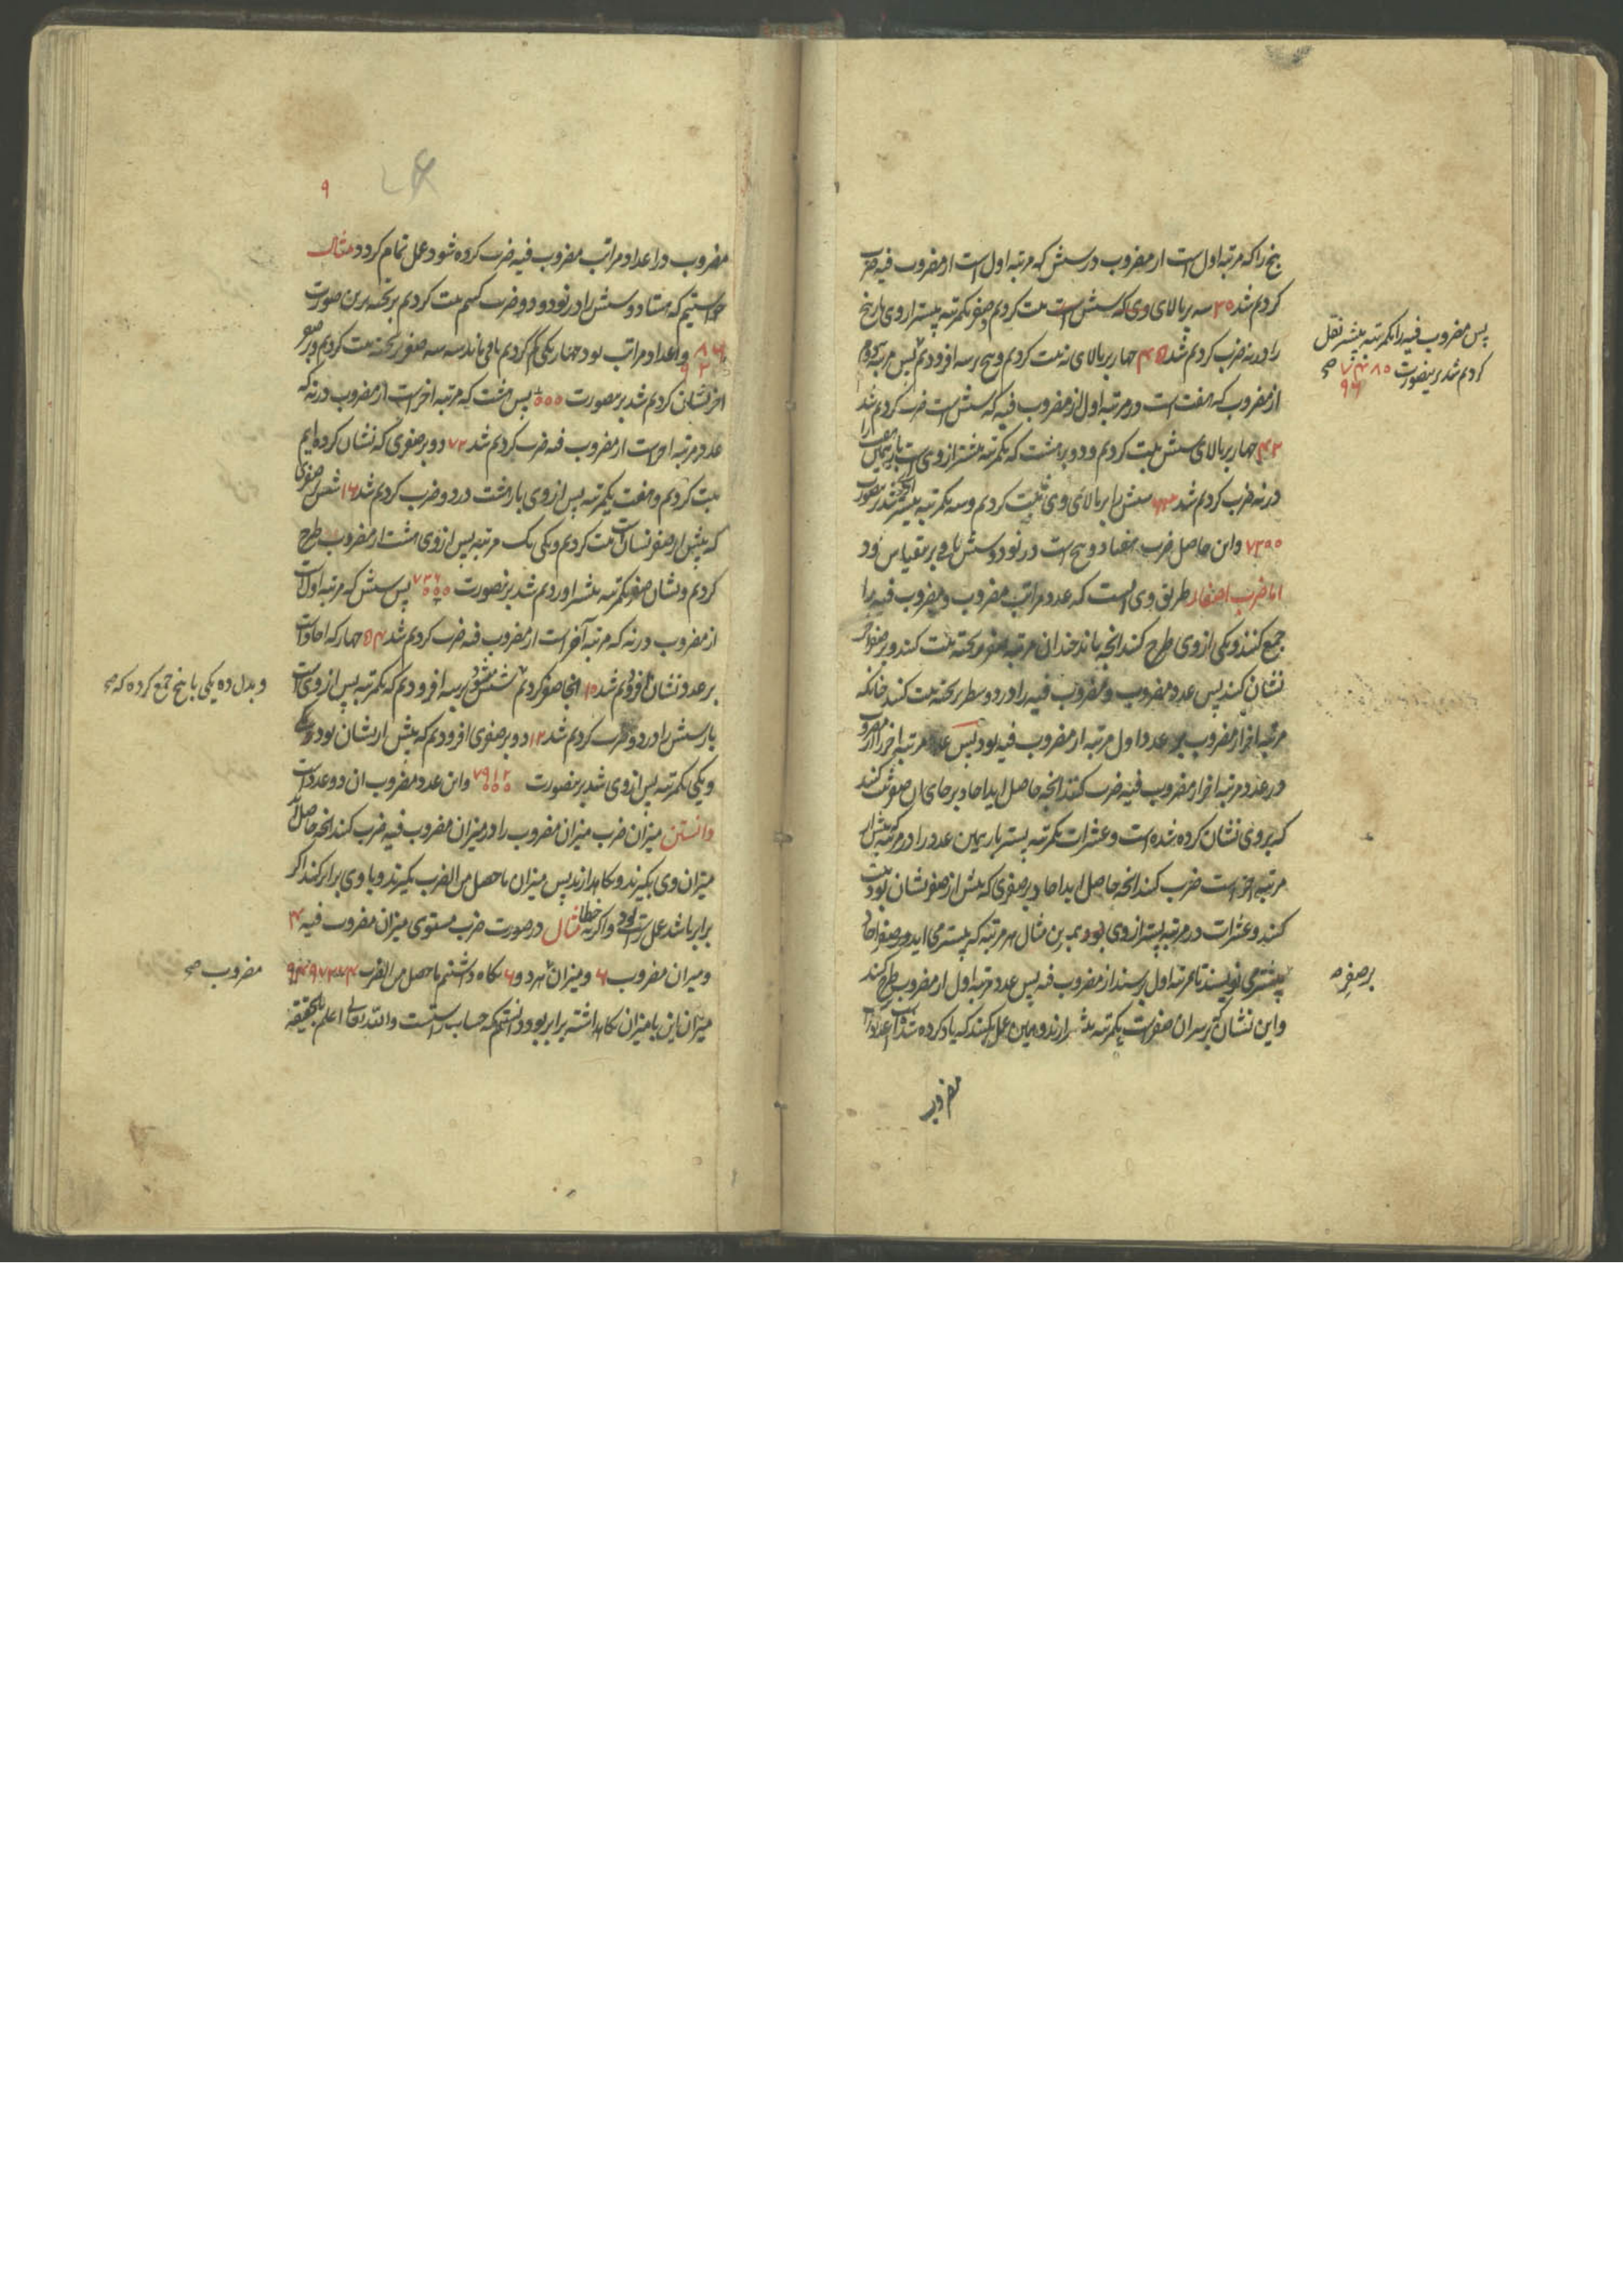 پنج را که مرتبه اول است از مضروب در شش که مرتبه اول است از مضروب فیه ضرب
کردیم شد ۳۰ سه بر بالای وی که شش است ثبت کردیم و صفر یکمرتبه پیشتر از وی باز پنج
را در نه ضرب کردیم شد ۴۵ چهار بر بالای نه ثبت کردیم و پنج بر سه افزودیم پس مرتبه دوم
از مضروب که هفت است در مرتبه اول از مضروب فیه که شش است ضرب کردیم شد
۴۲ چهار بر بالای شش ثبت کردیم و دو بر هشت که یکمرتبه پیشتر از وی است باز همان هفت را
در نه ضرب کردیم شد ۶۳ شش را بر بالای وی ثبت کردیم و سه یکمرتبه پیشتر
۷۲۰۰ و این حاصل ضرب هفتاد و پنج است در نود و شش باقی بر مقیاس بود
اما ضرب اصفار طریق وی آنست که عدد مراتب مضروب و مضروب فیه را
جمع کنند و یکی از وی طرح کنند آنچه بماند چندان مرتبه صفر بر تخته ثبت کنند و بر صفر آخر
نشان کنند پس عدد مضروب و مضروب فیه را در دو سطر بر تخته ثبت کنند چنانکه
مرتبه آخر از مضروب بر عدد اول مرتبه از مضروب فیه بود پس عدد مرتبه آخر را از مضروب
در عدد مرتبه آخر از مضروب فیه ضرب کنند آنچه حاصل آید احاد بر جای آن صفر ثبت کنند
که بر وی نشان کرده شده است و عشرات یکمرتبه پستر باز همین عدد را در مرتبه که پیش از
مرتبه آخر است ضرب کنند آنچه حاصل آید احاد بر صفری که پیش از صفر نشان بود ثبت
کنند و عشرات در مرتبه پستر از وی بود و بمبرین مثال هر مرتبه که پیشتر می آید در صفر احاد
پیشتر می نویسند تا بمرتبه اول رسند از مضروب فیه پس عدد مرتبه اول از مضروب طرح کنند
و این نشان که بر سر آن صفر است یکمرتبه پیشتر آرند و همین عمل بکنند که یاد کرده شد
مضروب
پس مضروب فیه را یکمرتبه پیشتر نقل
کردیم شد برینصورت ۷۴۸۵ صح
۹۶
بر صفر صح
۹
مضروب در اعداد مراتب مضروب فیه ضرب کرده شود و عمل تمام گردد مثال
خواستیم که هشتاد و شش را در نود و دو ضرب کنیم ثبت کردیم بر تخته برین صورت
۸۶
۹۲
و اعداد مراتب بود چهار یکی کم کردیم باقی ماند سه سه صفر بر تخته ثبت کردیم و بر صفر
آخر نشان کردیم شد برینصورت ۰۰۰ پس هشت که مرتبه آخر است از مضروب در نه که
عدد مرتبه آخر است از مضروب فیه ضرب کردیم شد ۷۲ دو بر صفری که نشان کرده ایم
ثبت کردیم و هفت یکمرتبه پس از وی باز هشت در دو ضرب کردیم شد ۱۶ شش بر صفری
که پیش از صفر نشان است ثبت کردیم و یکی یک مرتبه پس از وی هشت از مضروب طرح
کردیم و نشان صفر یکمرتبه پیشتر آوردیم شد برینصورت ۷۳۶۰ پس شش که مرتبه اول است
از مضروب در نه که مرتبه آخر است از مضروب فیه ضرب کردیم شد ۵۴ چهار که احاد است
بر عدد نشان افزودیم شد ۱۰ آنجا صفر کردیم شش بر سه افزودیم که یکمرتبه پس از وی است
باز شش را در دو ضرب کردیم شد ۱۲ دو بر صفری افزودیم که پیش از نشان بود
و یکی یکمرتبه پس از وی شد برینصورت ۷۹۱۲ و این عدد مضروب آن دو عدد است
دانستن میزان ضرب میزان مضروب را در میزان مضروب فیه ضرب کنند آنچه حاصل آید
میزان وی بگیرند و نگاه دارند پس میزان ما حصل من الضرب بگیرند و با وی برابر کنند اگر
برابر باشد عمل راست بود و اگر نه خطا مثال در صورت ضرب مستوی میزان مضروب فیه ۴
و میزان مضروب ۶ و میزان هر دو ۶ نگاه داشتیم ما حصل من الضرب
میزان این با میزان نگاه داشته برابر بود دانستیم که حساب راست است والله تعالی اعلم بالحقیقه
و بدل ده یکی با پنج جمع کرده که صح
مضروب صح